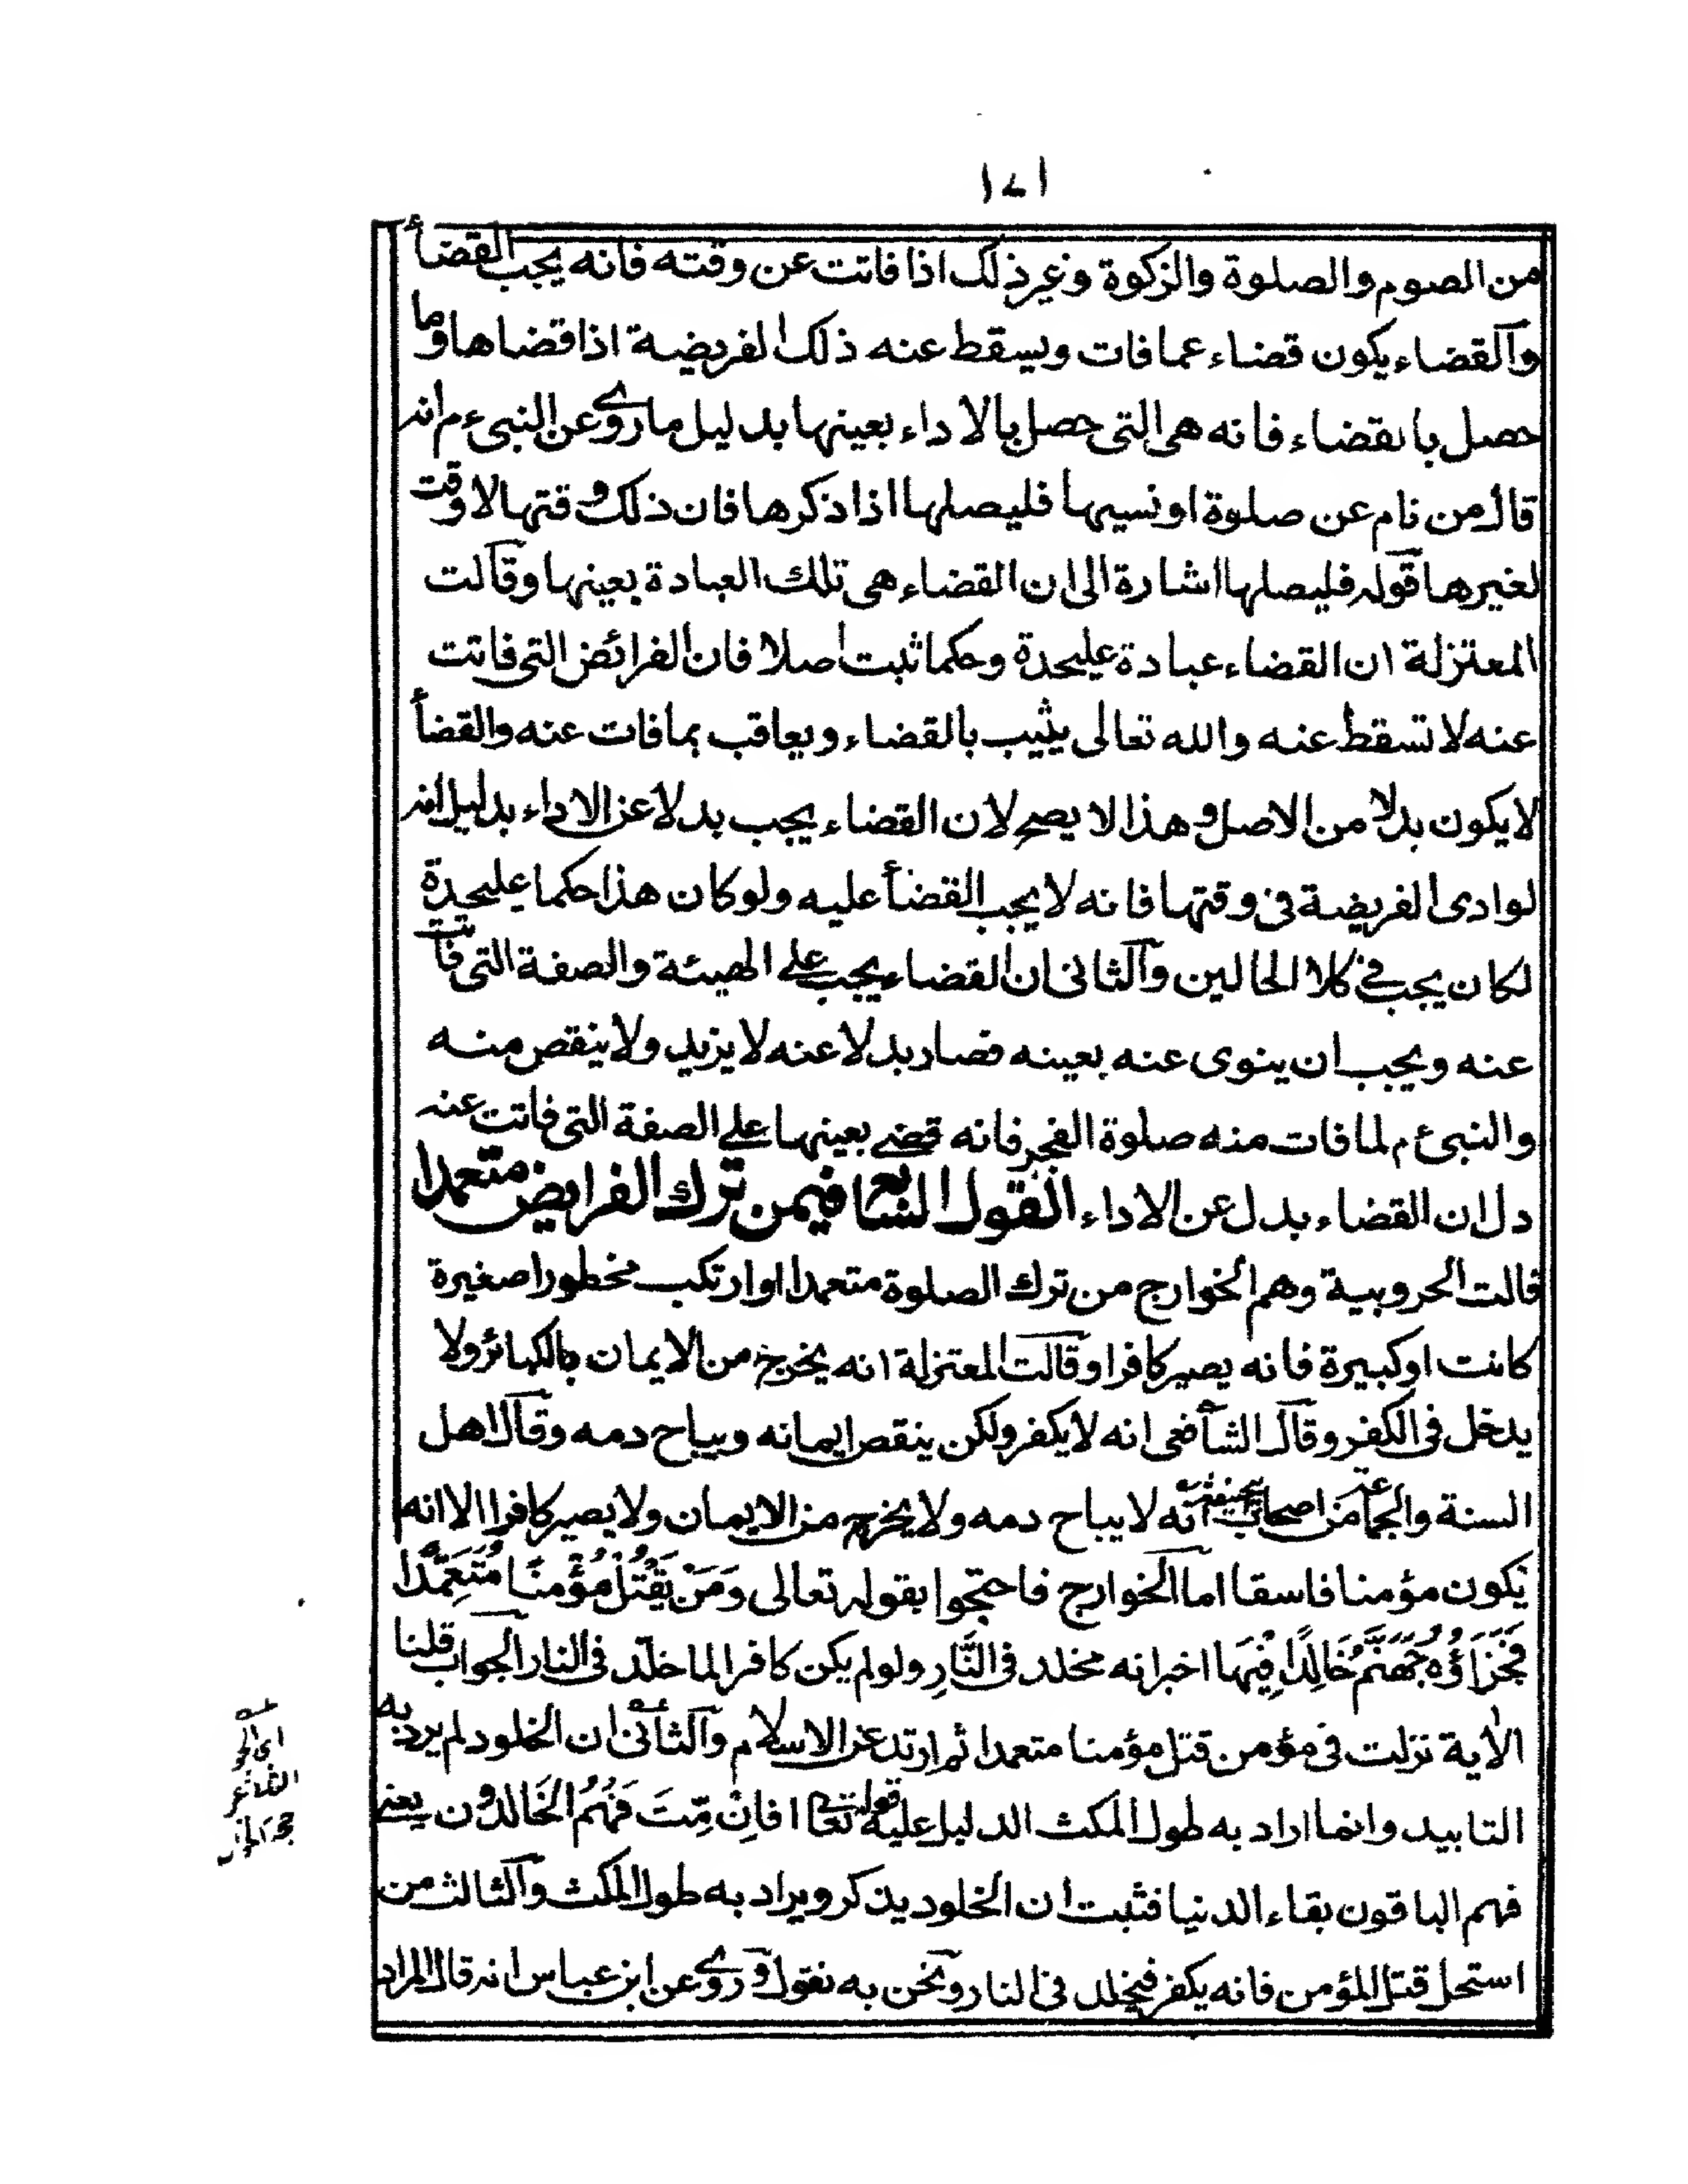 ١٧١
من الصوم والصلوة والزكوة وغير ذلك اذا فاتت عن وقته فانه يجب القضأ
والقضاء يكون قضاء عما فات ويسقط عنه ذلك الفريضة اذا قضاها وما
حصل بالقضاء فانه هى التى حصل بالاداء بعينها بدليل ما روى عن النبى ءم انه
قال من نام عن صلوة او نسيها فليصلها اذا ذكرها فان ذلك وقتها لا وقت
لغيرها قوله فليصلها اشارة الى ان القضاء هى تلك العبادة بعينها وقالت
المعتزلة ان القضاء عبادة عليحدة وحكما ثبت اصلا فان الفرائض التى فاتت
عنه لا تسقط عنه والله تعالى يثيب بالقضاء ويعاقب بما فات عنه والقضأ
لا يكون بدلا من الاصل وهذا لا يصح لان القضاء يجب بدلا عن الاداء بدليل انه
لو ادى الفريضة فى وقتها فانه لا يجب القضأ عليه ولو كان هذا حكما عليحدة
لكان يجب فى كلا الحالين والثانى ان القضاء يجب على الهيئة والصفة التى فاتت
عنه ويجب ان ينوى عنه بعينه فصار بدلا عنه لا يزيد ولا ينقص منه
والنبى ءم لما فات منه صلوة الفجر فانه قضى بعينها على الصفة التى فاتت عنه
دل ان القضاء بدل عن الاداء القول السابع فيمن ترك الفرايض متعمدا
قالت الحروبية وهم الخوارج من ترك الصلوة متعمدا او ارتكب مخطورا صغيرة
كانت او كبيرة فانه يصير كافرا وقالت المعتزلة انه يخرج من الايمان بالكبائر ولا
يدخل فى الكفر وقال الشافعى انه لا يكفر ولكن ينقص ايمانه ويباح دمه وقال اهل
السنة والجماعة من اصحاب ابيحنيفة انه لا يباح دمه ولا يخرج من الايمان ولا يصير كافرا الا انه
يكون مؤمنا فاسقا اما الخوارج فاحتجوا بقوله تعالى وَمَنْ يَقْتُلْ مُؤْمِنًا مُتَعَمِّدًا
فَجَزَاؤُهُ جَهَنَّمُ خَالِدًا فِيْهَا اخبر انه مخلد فى النَّارِ ولو لم يكن كافرا لما خلّد فى النار الجواب قلنا
الاية نزلت فى مؤمن قتل مؤمنا متعمدا ثم ارتد عن الاسلام والثانى ان الخلود لم يرد به
التابيد وانما اراد به طول المكث الدليل عليه قوله تعا افاِنْ مِّتَ فَهُمُ الخَالدُون يعنى
فهم الباقون بقاء الدنيا فثبت ان الخلود يذكر ويراد به طول المكث والثالث من
استحل قتل المؤمن فانه يكفر فيخلد فى النار ونحن به نقول وروى عن ابن عباس انه قال المراد